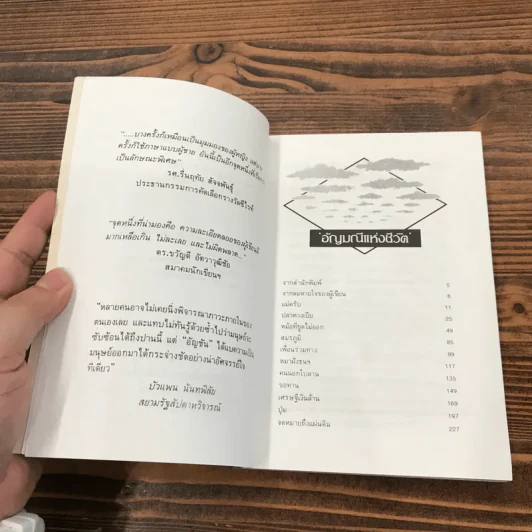 ".....บางครั้งก็เหมือนเป็นมุมมองของผู้หญิง
ครั้งก็ใช้ภาษาแบบผู้ชาย อันนี้เป็นอีกจุดหนึ่งที่
เป็นลักษณะพิเศษ"
รศ.รื่นฤทัย สัจจพันธุ์
ประธานกรรมการคัดเลือกรางวัลซีไรต์
"จุดหนึ่งที่น่ามองคือ ความละเอียดลออของผู้เขียนมี
มากเหลือเกิน ไม่ละเลย และไม่ผิดพลาด..."
ดร.ขวัญดี อัตวาวุฒิชัย
สมาคมนักเขียนฯ
"หลายคนอาจไม่เคยนึ่งพิจารณาภาวะภายในของ
ตนเองเลย และแทบไม่ทันรู้ด้วยซ้ำไปว่ามนุษย์จะ
ซับซ้อนได้ถึงปานนี้ แต่ "อัญชัน" ได้แบความเป็น
มนุษย์ออกมาได้กระจ่างชัดอย่างน่าอัศจรรย์ใจ
ทีเดียว"
บัวแพน นันทพิสัย
สยามรัฐสัปดาหวิจารณ์
"อัญมณีแห่งชีวิต"
จากสำนักพิมพ์ 5
จากลมหายใจของผู้เขียน 6
แม่ครับ 11
ปลาตะเงียบ 25
หม้อที่ขูดไม่ออก 49
สมรภูมิ 85
เพื่อนร่วมทาง 99
ลมาฝังชนฯ 117
คนนอกใบลาน 135
ขอทาน 149
เศรษฐีเงินล้าน 169
ปุ่ม 197
จดหมายถึงแผ่นดิน 227